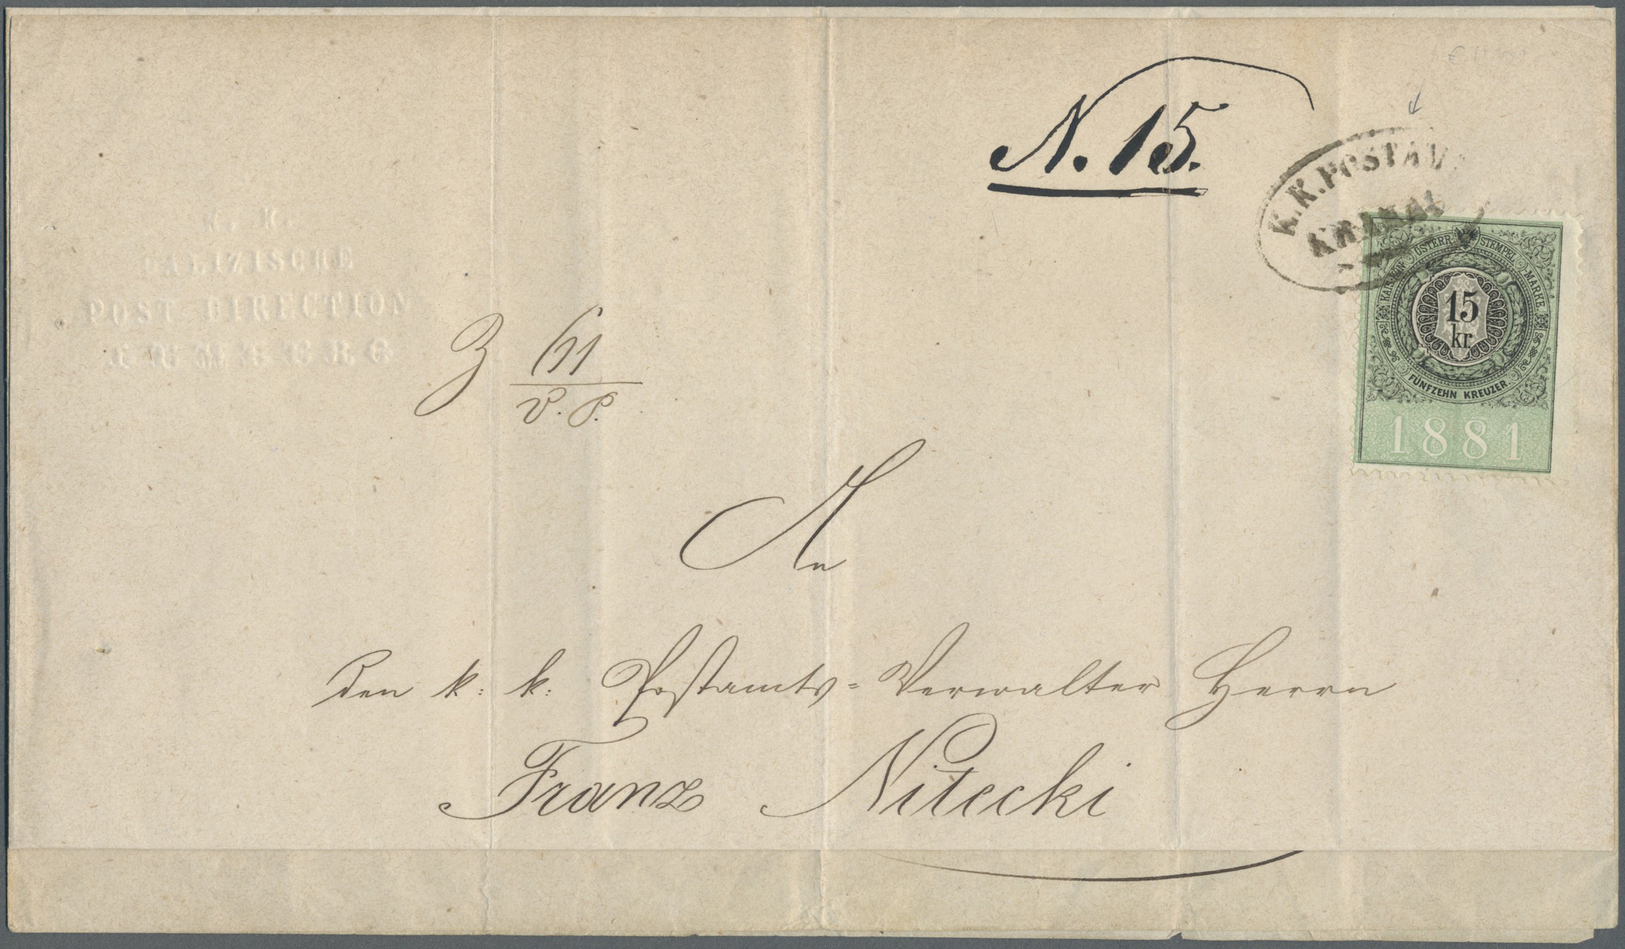 N. 15.
K. K. POSTAM
K. K.
GALIZISCHE
POST-DIRECTION
LEMBERG
KAIS. KÖN. ÖSTERR. STEMPEL MARKE
15
kr.
FÜNFZEHN KREUZER.
1881
Z 611
V. P.
An
den k: k: Postamts-Verwalter Herrn
Franz Nitecki